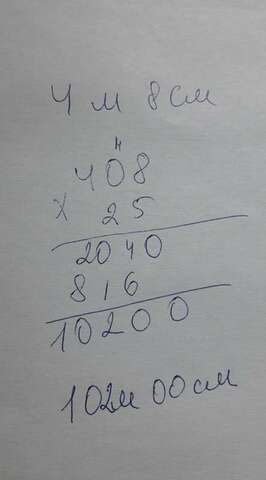 4 м 8 см
4
408
х 25
2040
816
10200
102м 00см